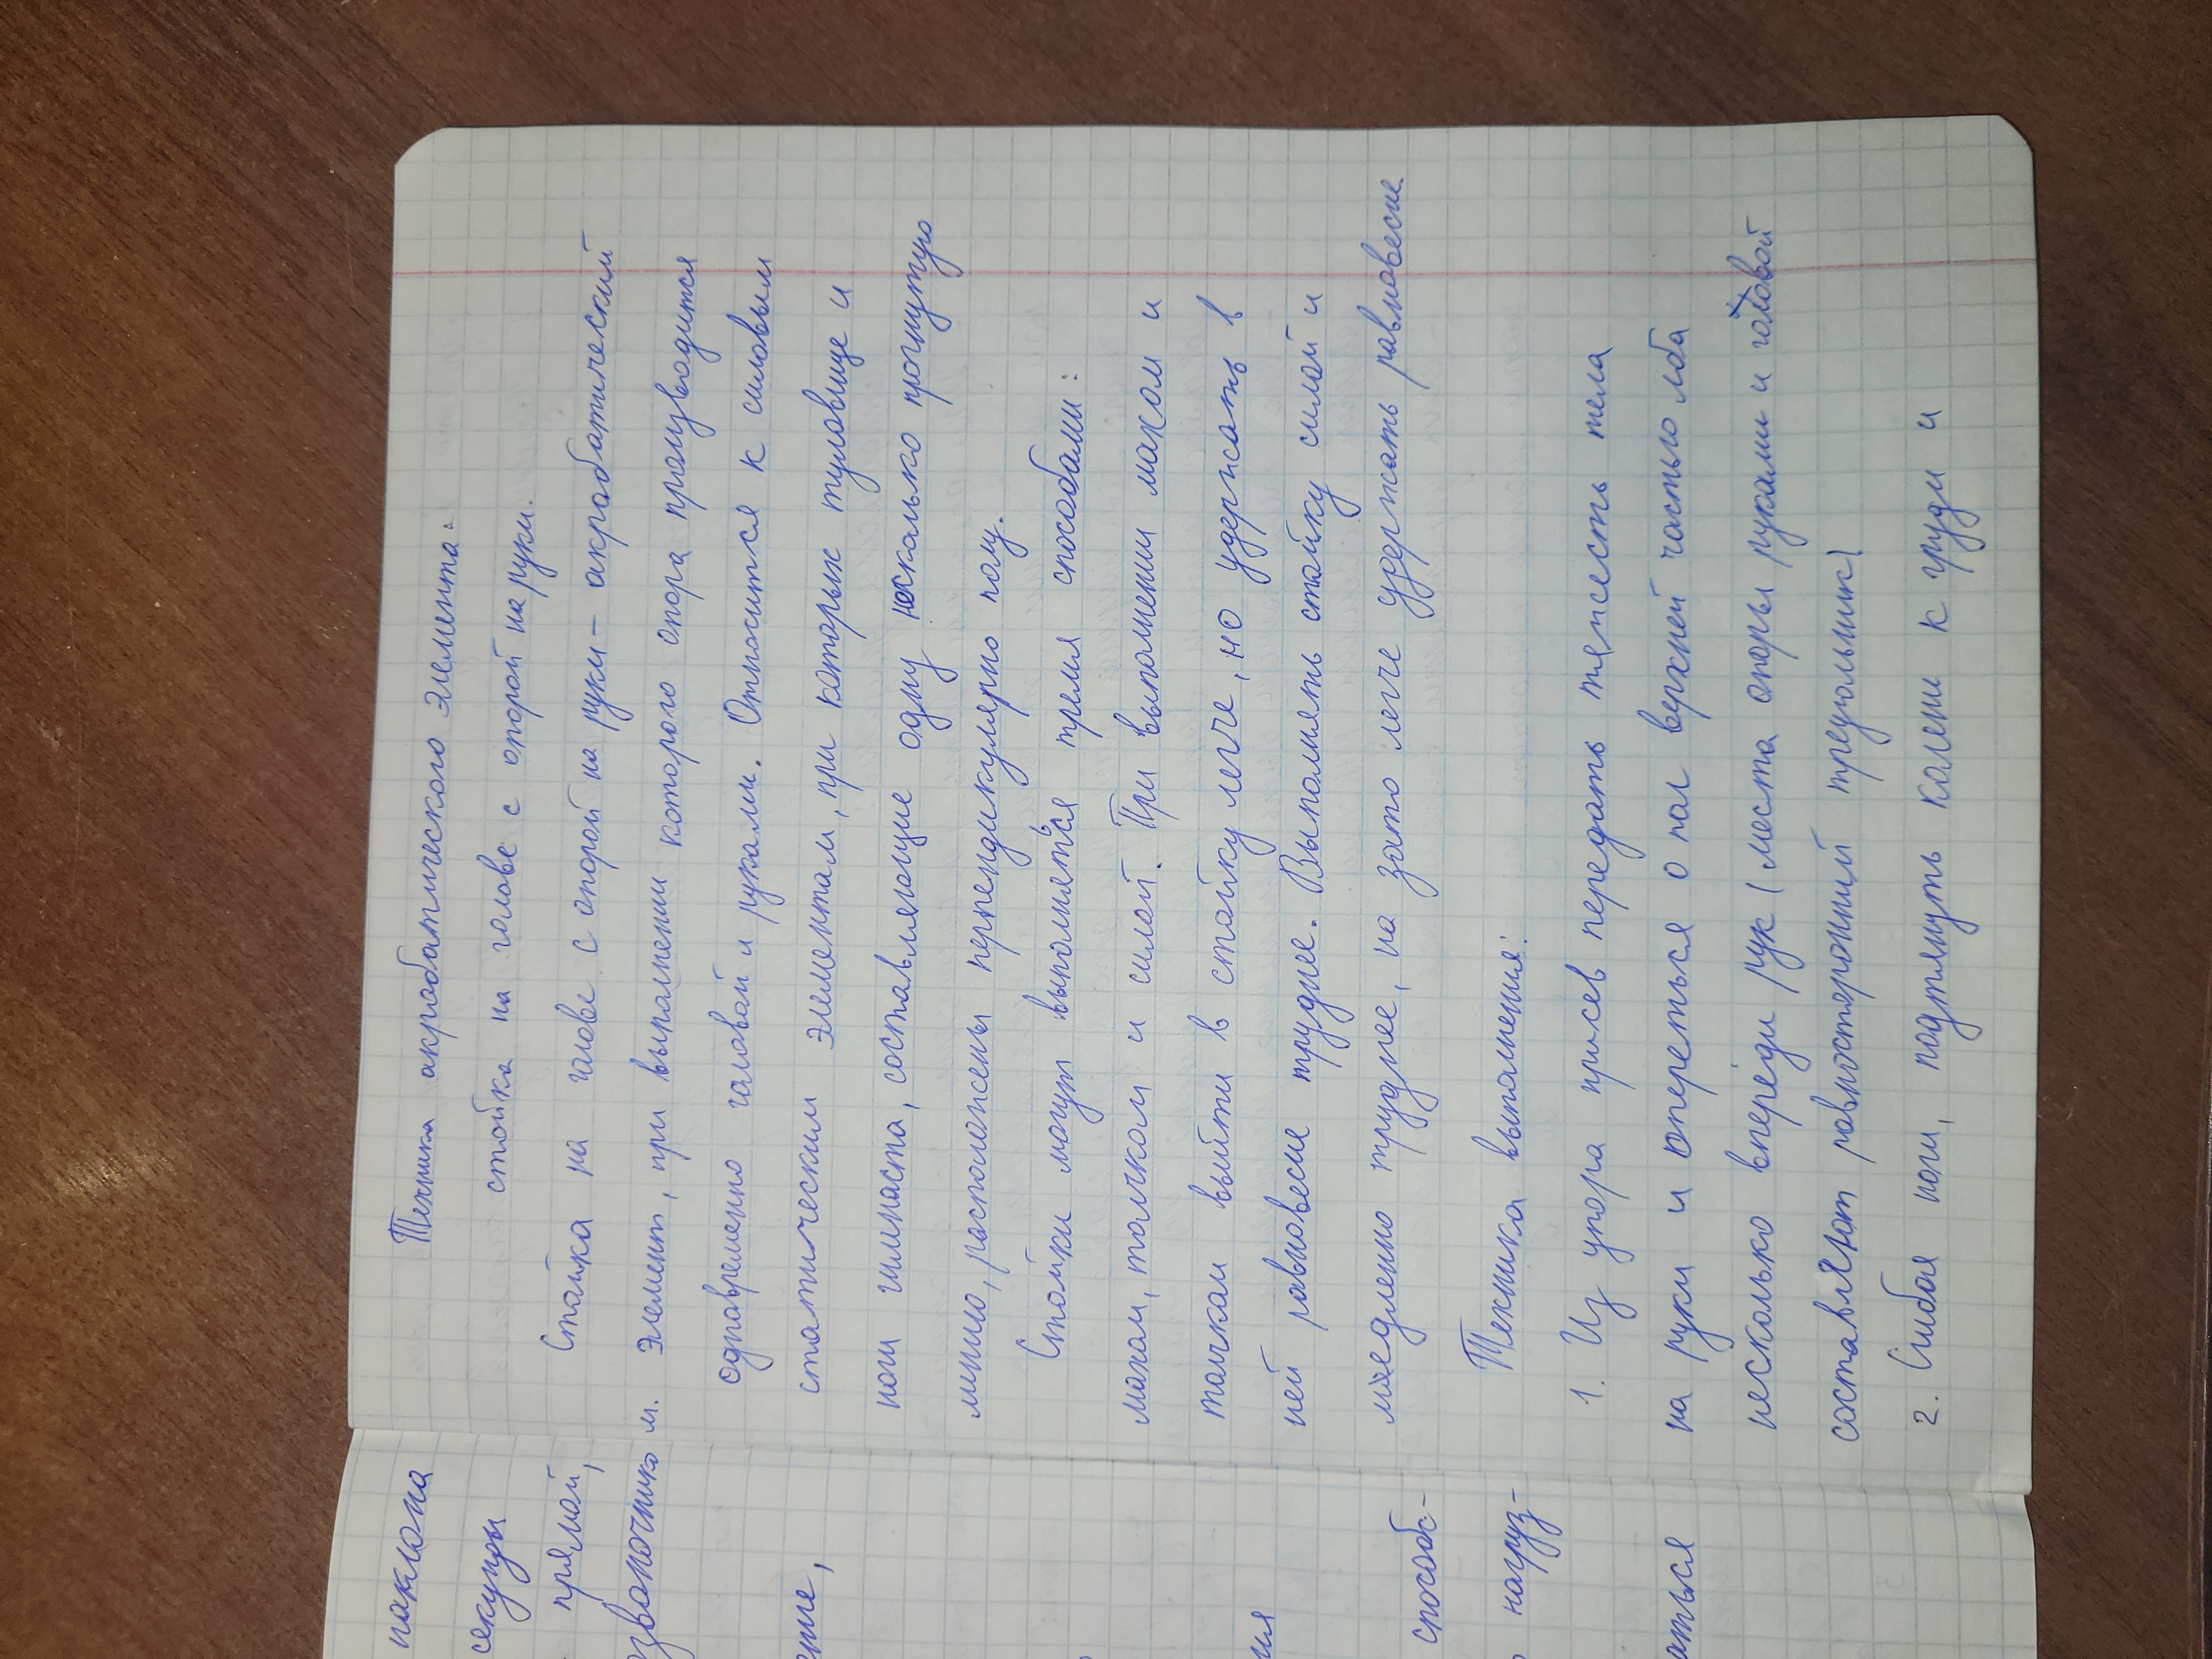 наклона
секунды
прямой,
звоночником.
ение,
ния
способ-
нагруз-
аться
Техника акробатического элемента:
стойка на голове с опорой на руки.
Стойка на голове с опорой на руки - акробатический
элемент, при выполнении которого опора производится
одновременно головой и руками. Относится к силовым
статическим элементам, при которых туловище и
ноги гимнаста, составляющие одну несколько прогнутую
линию, расположены перпендикулярно полу.
Стойки могут выполняться тремя способами:
махом, толчком и силой. При выполнении махом и
толчком выйти в стойку легче, но удержать в
ней равновесие труднее. Выполнять стойку силой и
медленно труднее, но зато легче удержать равновесие.
Техника выполнения:
1. Из упора присев передать тяжесть тела
на руки и опереться о пол верхней частью лба
несколько впереди рук (места опоры руками и головой
составляют равносторонний треугольник)
2. Сгибая ноги, подтянуть колени к груди и